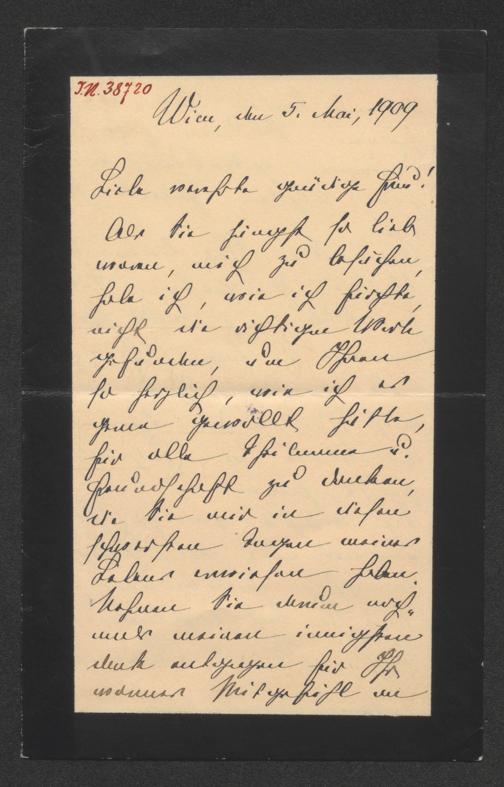 I.N. 38720
Wien, den 5. Mai, 1909
Liebe verehrte gnädige Frau!
Als Sie jüngst so lieb
waren, mich zu besuchen,
habe ich, wie ich fürchte,
nicht die richtigen Worte
gefunden, um Ihnen
so herzlich, wie ich es
gerne gewollt hätte,
für alle Theilname u.
Freundschaft zu danken,
die Sie mir in diesen
schwersten Tagen meines
Lebens erwiesen haben.
Nehmen Sie darum noch-
mals meinen innigsten
Dank entgegen für Ihr
warmes Mitgefühl an